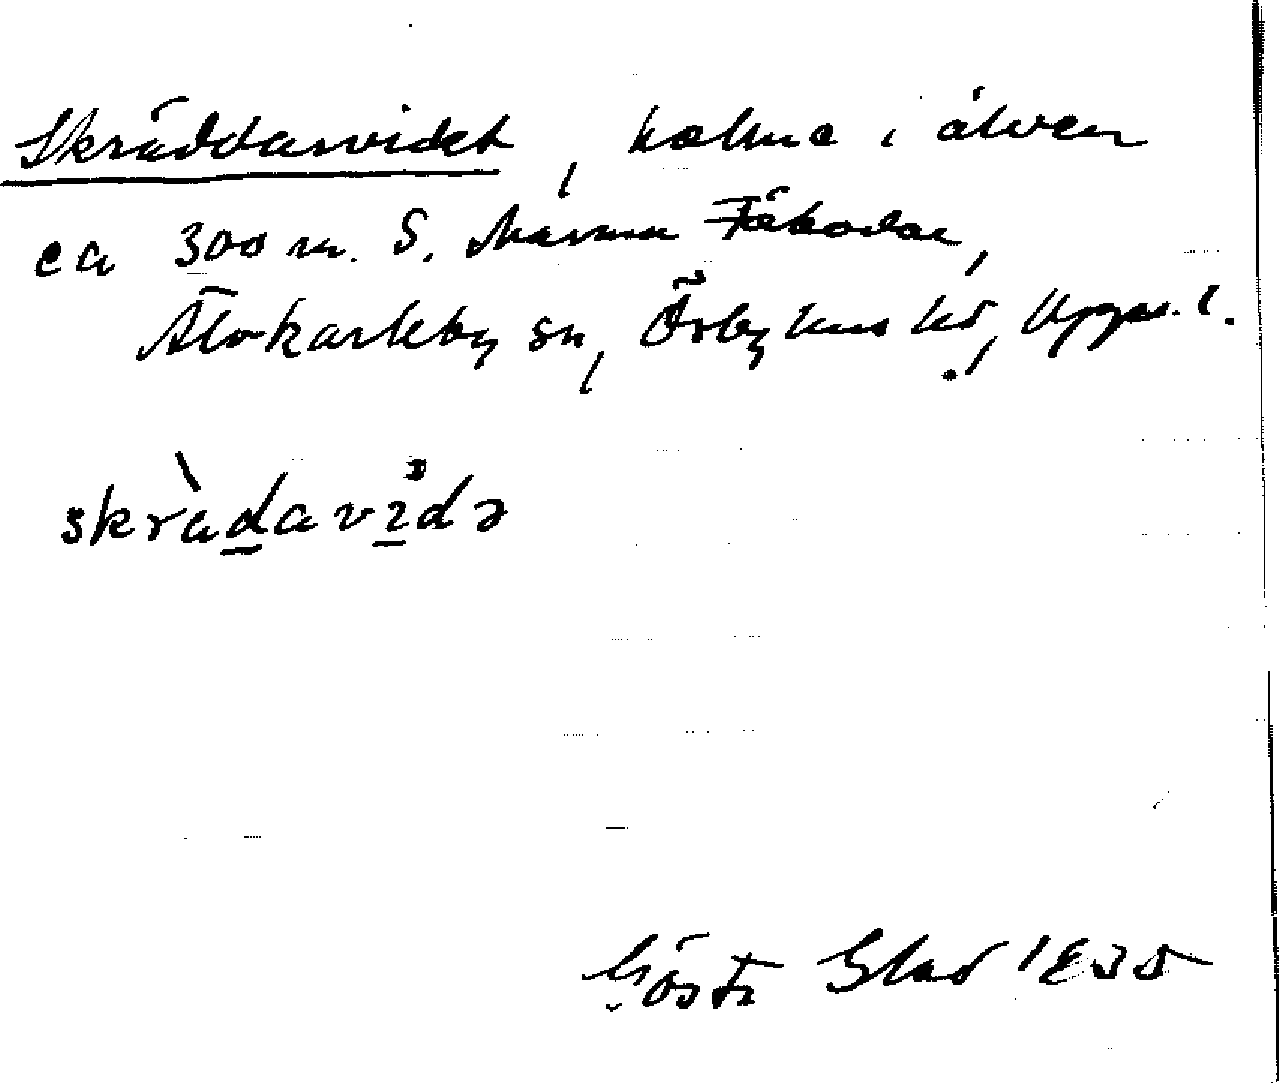 Skräddarvidet, holme i älven
ca 300 m. S. Marma Fäbodar,
Älvkarleby sn, Örbyhus hd, Upps. l.
skràdavidə
Gösta